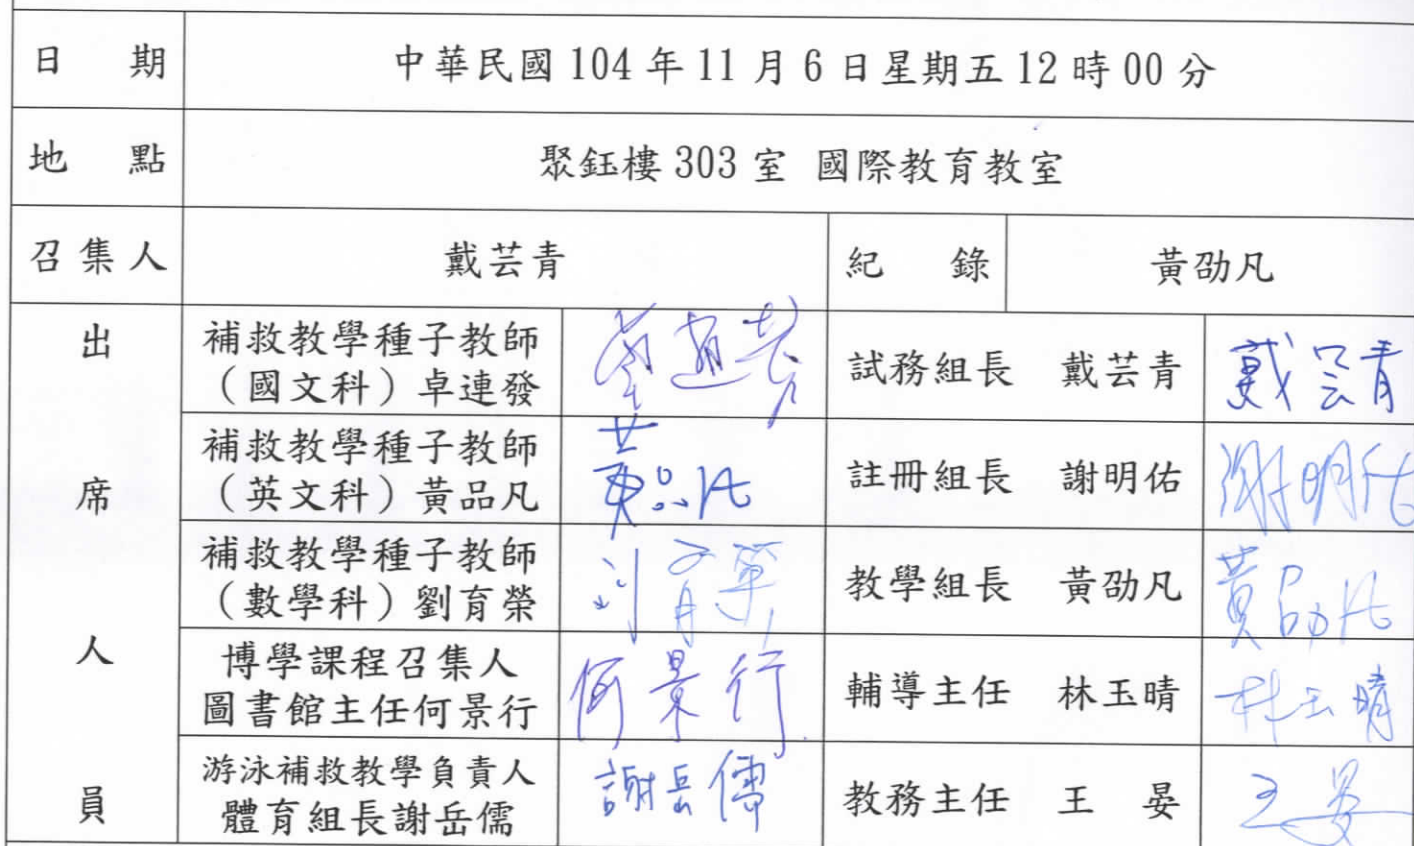 日 期 中華民國 104 年 11 月 6 日星期五 12 時 00 分
地 點 聚鈺樓 303 室 國際教育教室
召集人 戴芸青 紀 錄 黃劭凡
出席人員
補救教學種子教師
（國文科）卓連發
試務組長 戴芸青 戴芸青
補救教學種子教師
（英文科）黃品凡 黃品凡
註冊組長 謝明佑 謝明佑
補救教學種子教師
（數學科）劉育榮 刘育榮
教學組長 黃劭凡 黃劭凡
博學課程召集人
圖書館主任何景行 何景行
輔導主任 林玉晴 林玉晴
游泳補救教學負責人
體育組長謝岳儒 謝岳儒
教務主任 王 晏 王晏